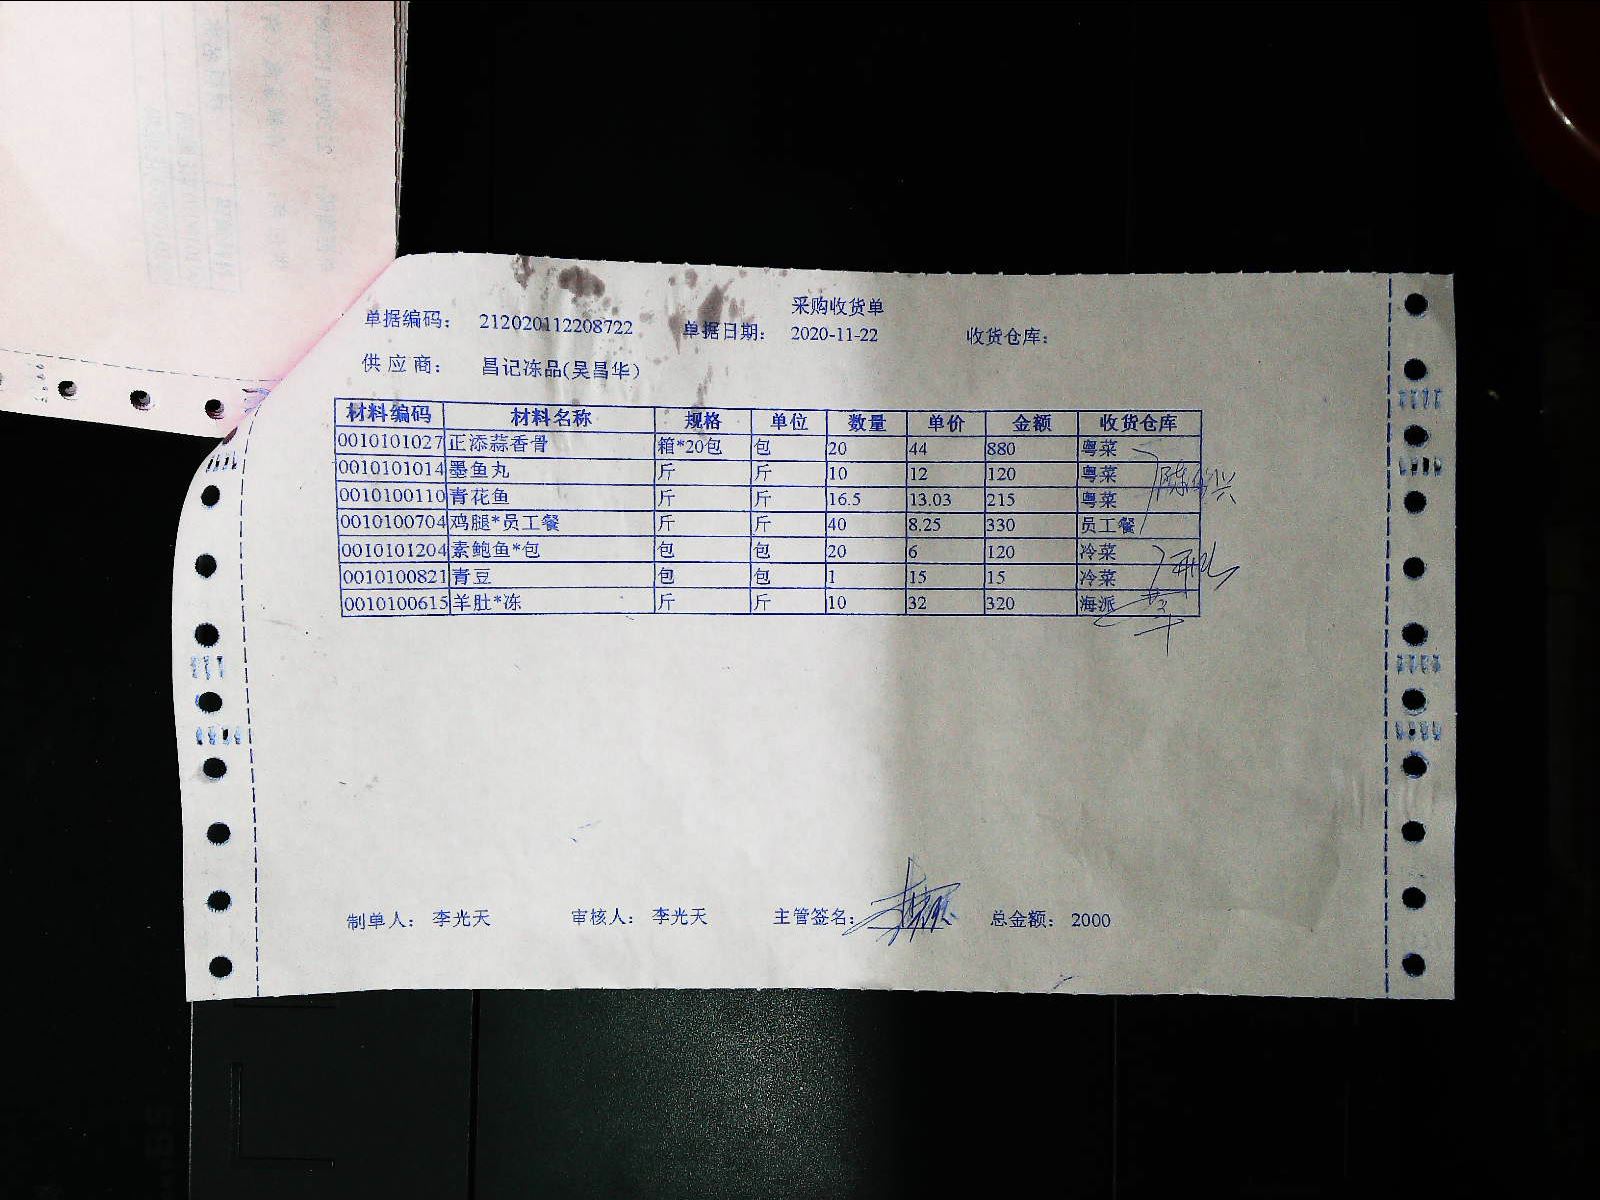 采购收货单
单据编码： 212020112208722 单据日期： 2020-11-22 收货仓库：
供 应 商： 昌记冻品(吴昌华)
材料编码 材料名称 规格 单位 数量 单价 金额 收货仓库
0010101027 正添蒜香骨 箱*20包 包 20 44 880 粤菜
0010101014 墨鱼丸 斤 斤 10 12 120 粤菜
0010100110 青花鱼 斤 斤 16.5 13.03 215 粤菜
0010100704 鸡腿*员工餐 斤 斤 40 8.25 330 员工餐
0010101204 素鲍鱼*包 包 包 20 6 120 冷菜
0010100821 青豆 包 包 1 15 15 冷菜
0010100615 羊肚*冻 斤 斤 10 32 320 海派
制单人： 李光天 审核人： 李光天 主管签名： 总金额： 2000